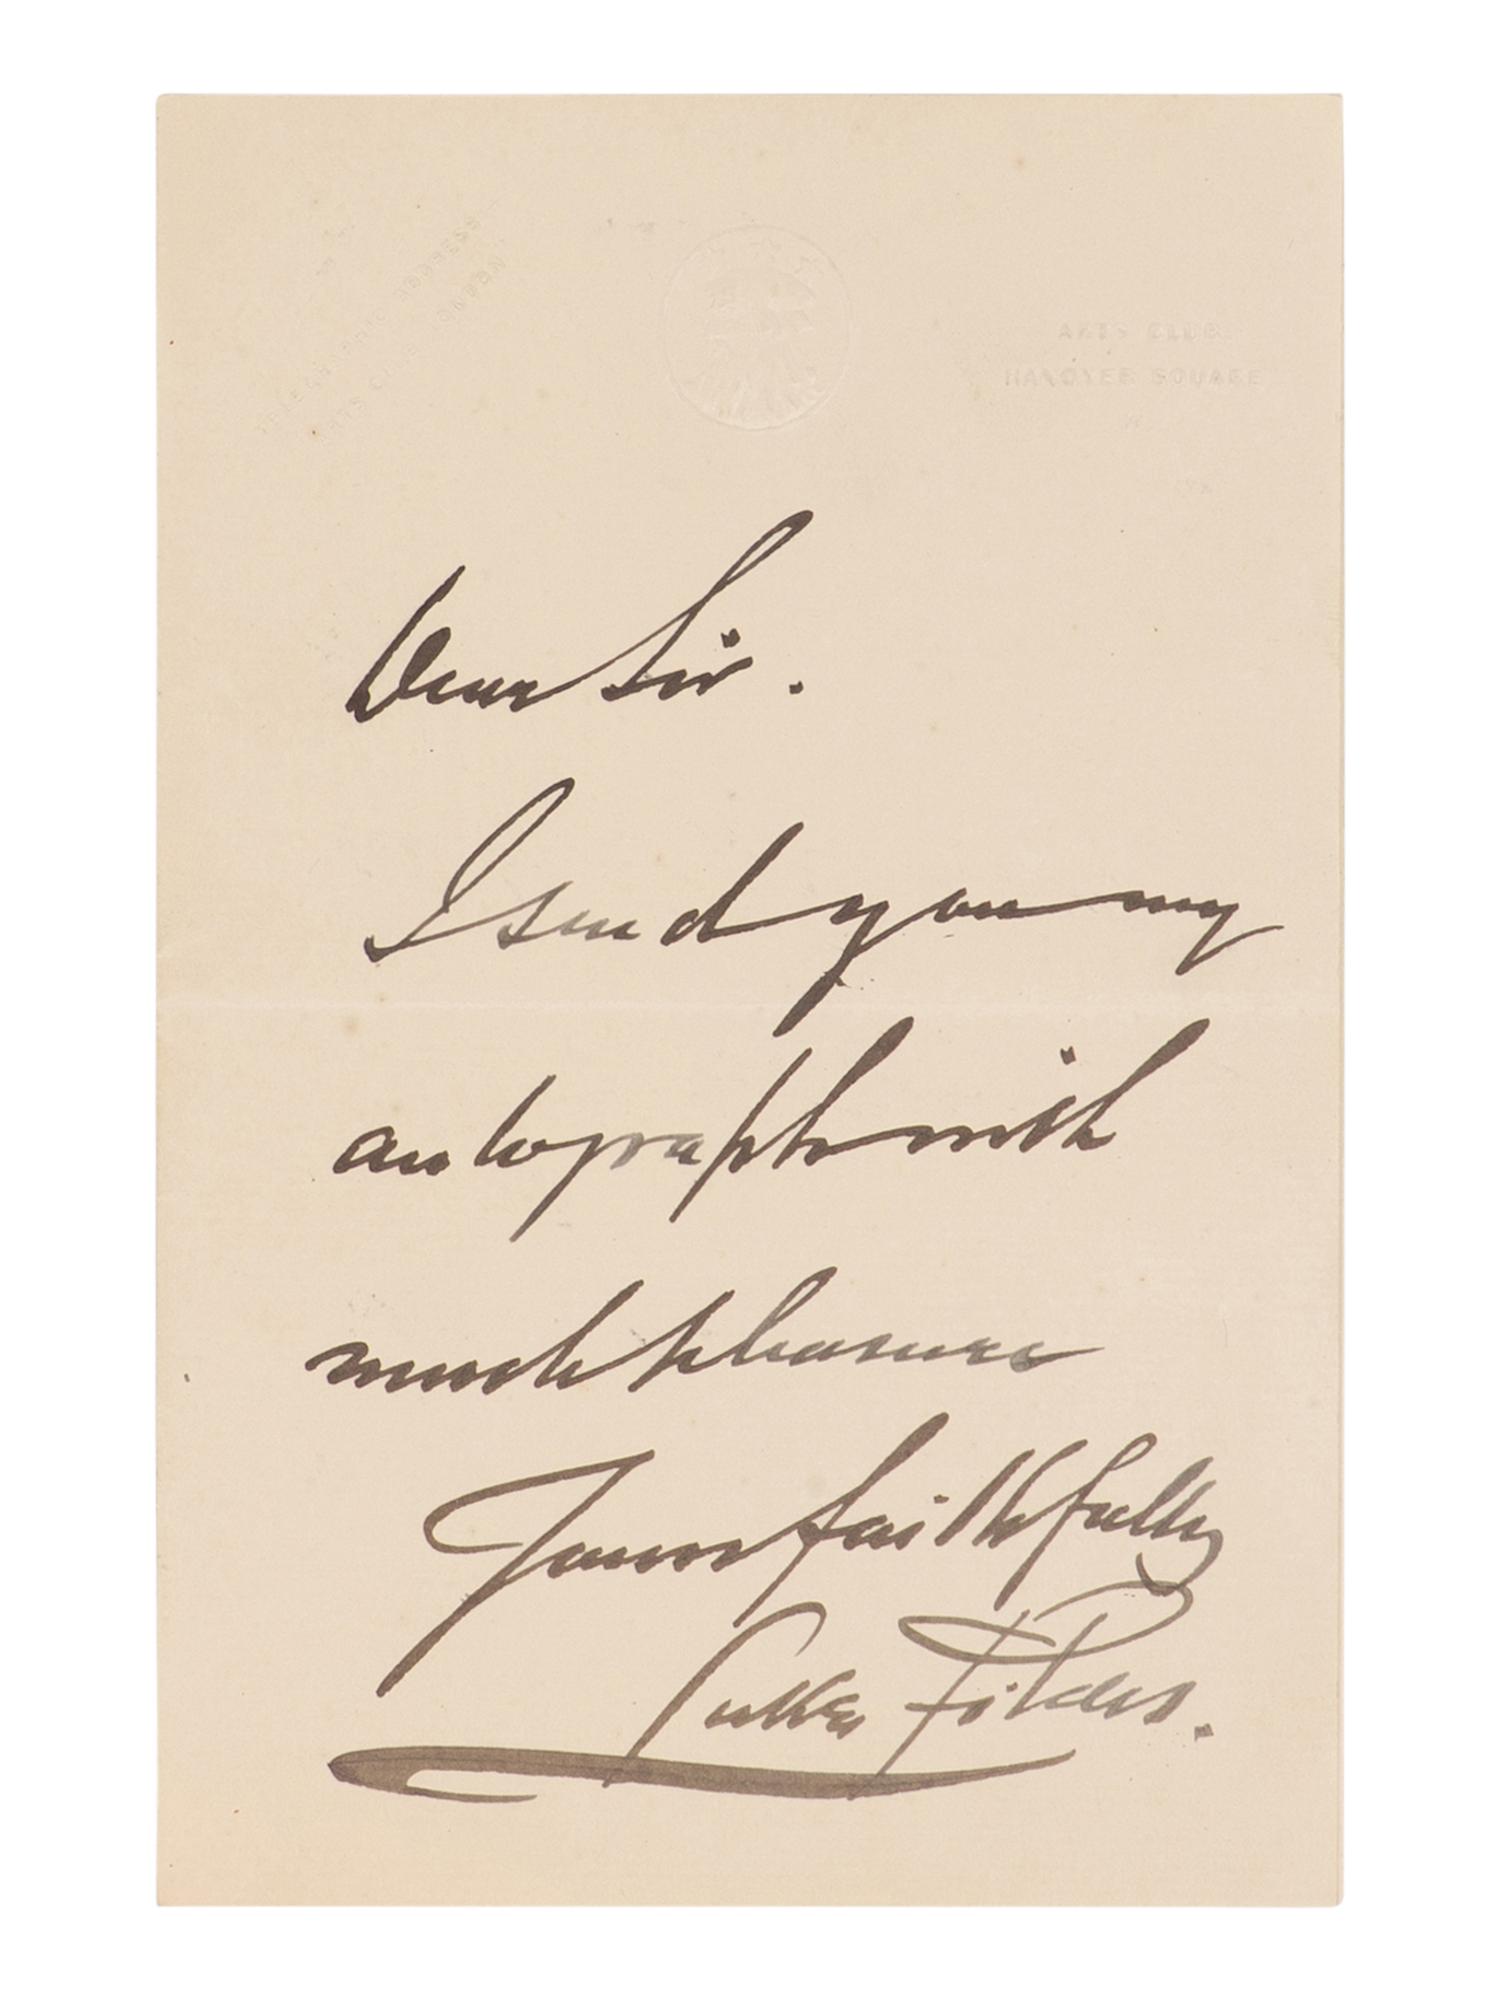 TELEGRAPHIC ADDRESS
ARTS CLUB LONDON
ARTS CLUB
HANOVER SQUARE
W
Dear Sir.
I send you my
autograph with
much pleasure
Yours faithfully
Luke Fildes.